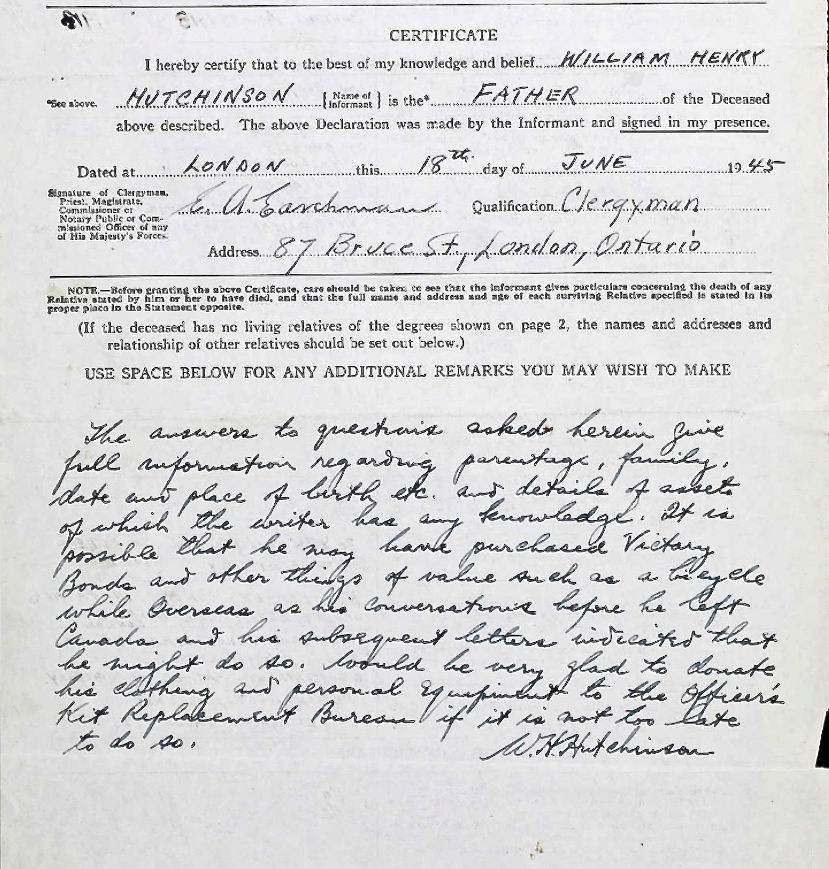 CERTIFICATE
I hereby certify that to the best of my knowledge and belief WILLIAM HENRY
*See above. HUTCHINSON {Name of Informant} is the* FATHER of the Deceased
above described. The above Declaration was made by the Informant and signed in my presence.
Dated at LONDON this 18th day of JUNE 1945
Signature of Clergyman,
Priest, Magistrate,
Commissioner or
Notary Public or Com-
missioned Officer of any
of His Majesty's Forces.
E. A.
Qualification Clergyman
Address 87 Bruce St., London, Ontario
NOTE.—Before granting the above Certificate, care should be taken to see that the informant gives particulars concerning the death of any
Relative stated by him or her to have died, and that the full name and address and age of each surviving Relative specified is stated in its
proper place in the Statement opposite.
(If the deceased has no living relatives of the degrees shown on page 2, the names and addresses and
relationship of other relatives should be set out below.)
USE SPACE BELOW FOR ANY ADDITIONAL REMARKS YOU MAY WISH TO MAKE
The answers to questions asked herein give
full information regarding parentage, family,
date and place of birth etc. and details of assets
of which the writer has any knowledge. It is
possible that he may have purchased Victory
Bonds and other things of value such as a bicycle
while Overseas as his conversations before he left
Canada and his subsequent letters indicated that
he might do so. Would be very glad to donate
his clothing and personal Equipment to the Officer's
Kit Replacement Bureau if it is not too late
to do so.
W.H. Hutchinson